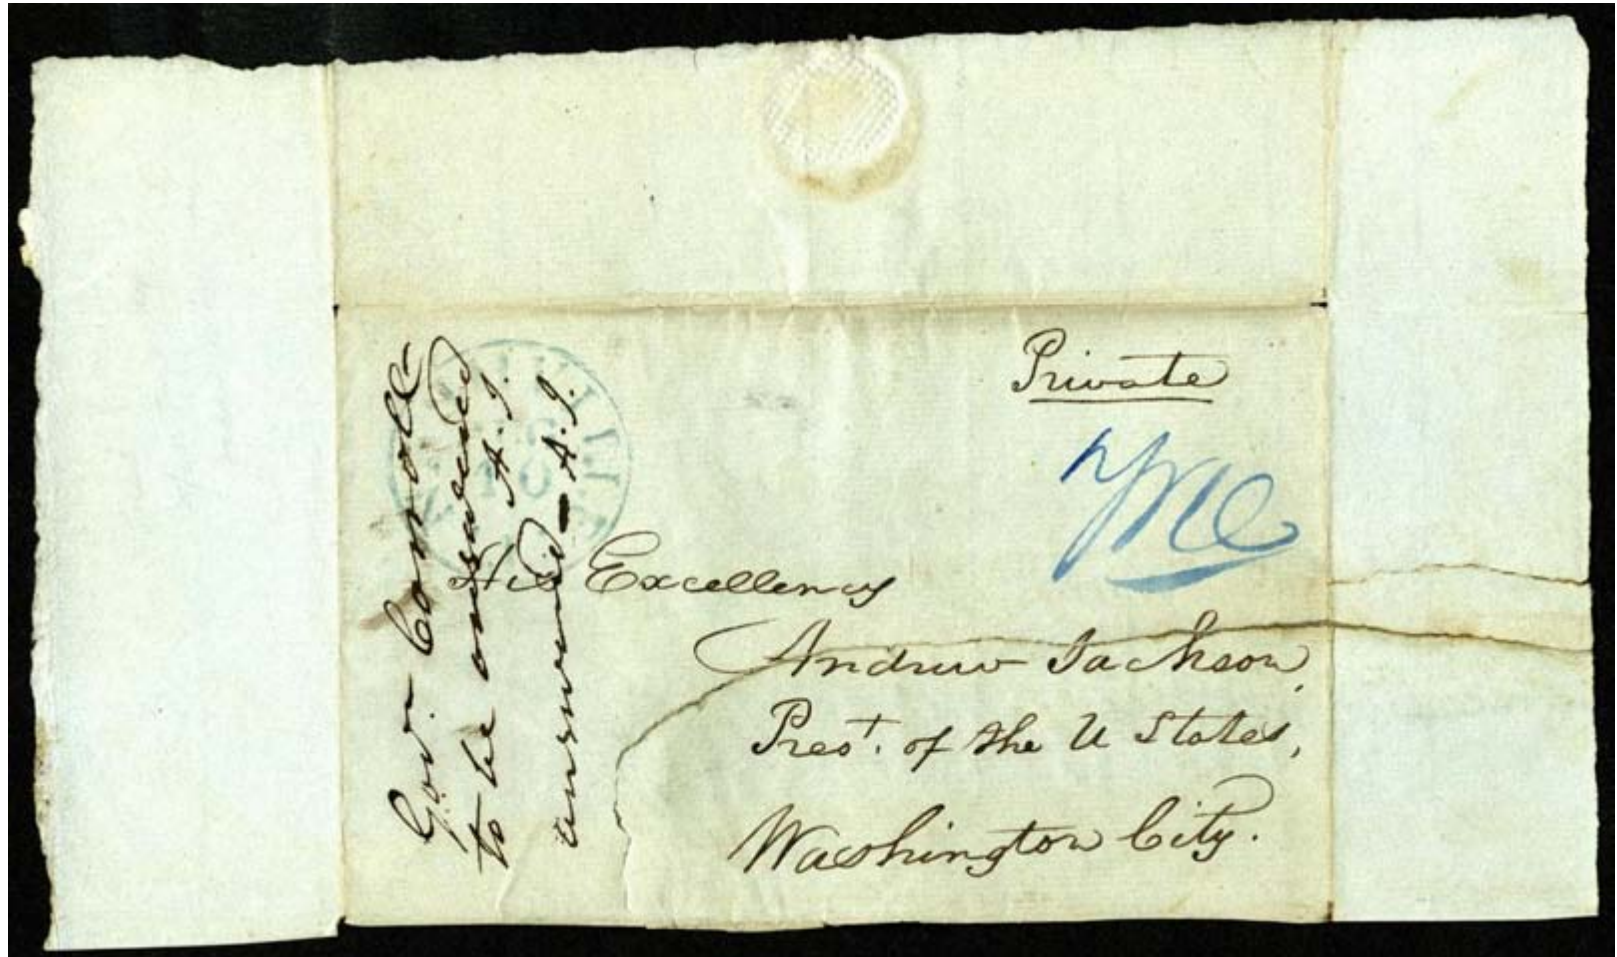 Private
Free
His Excellency
Andrew Jackson,
Prest. of the U States,
Washington City.
Govr.
to be answered
A. J.
answered - A. J.